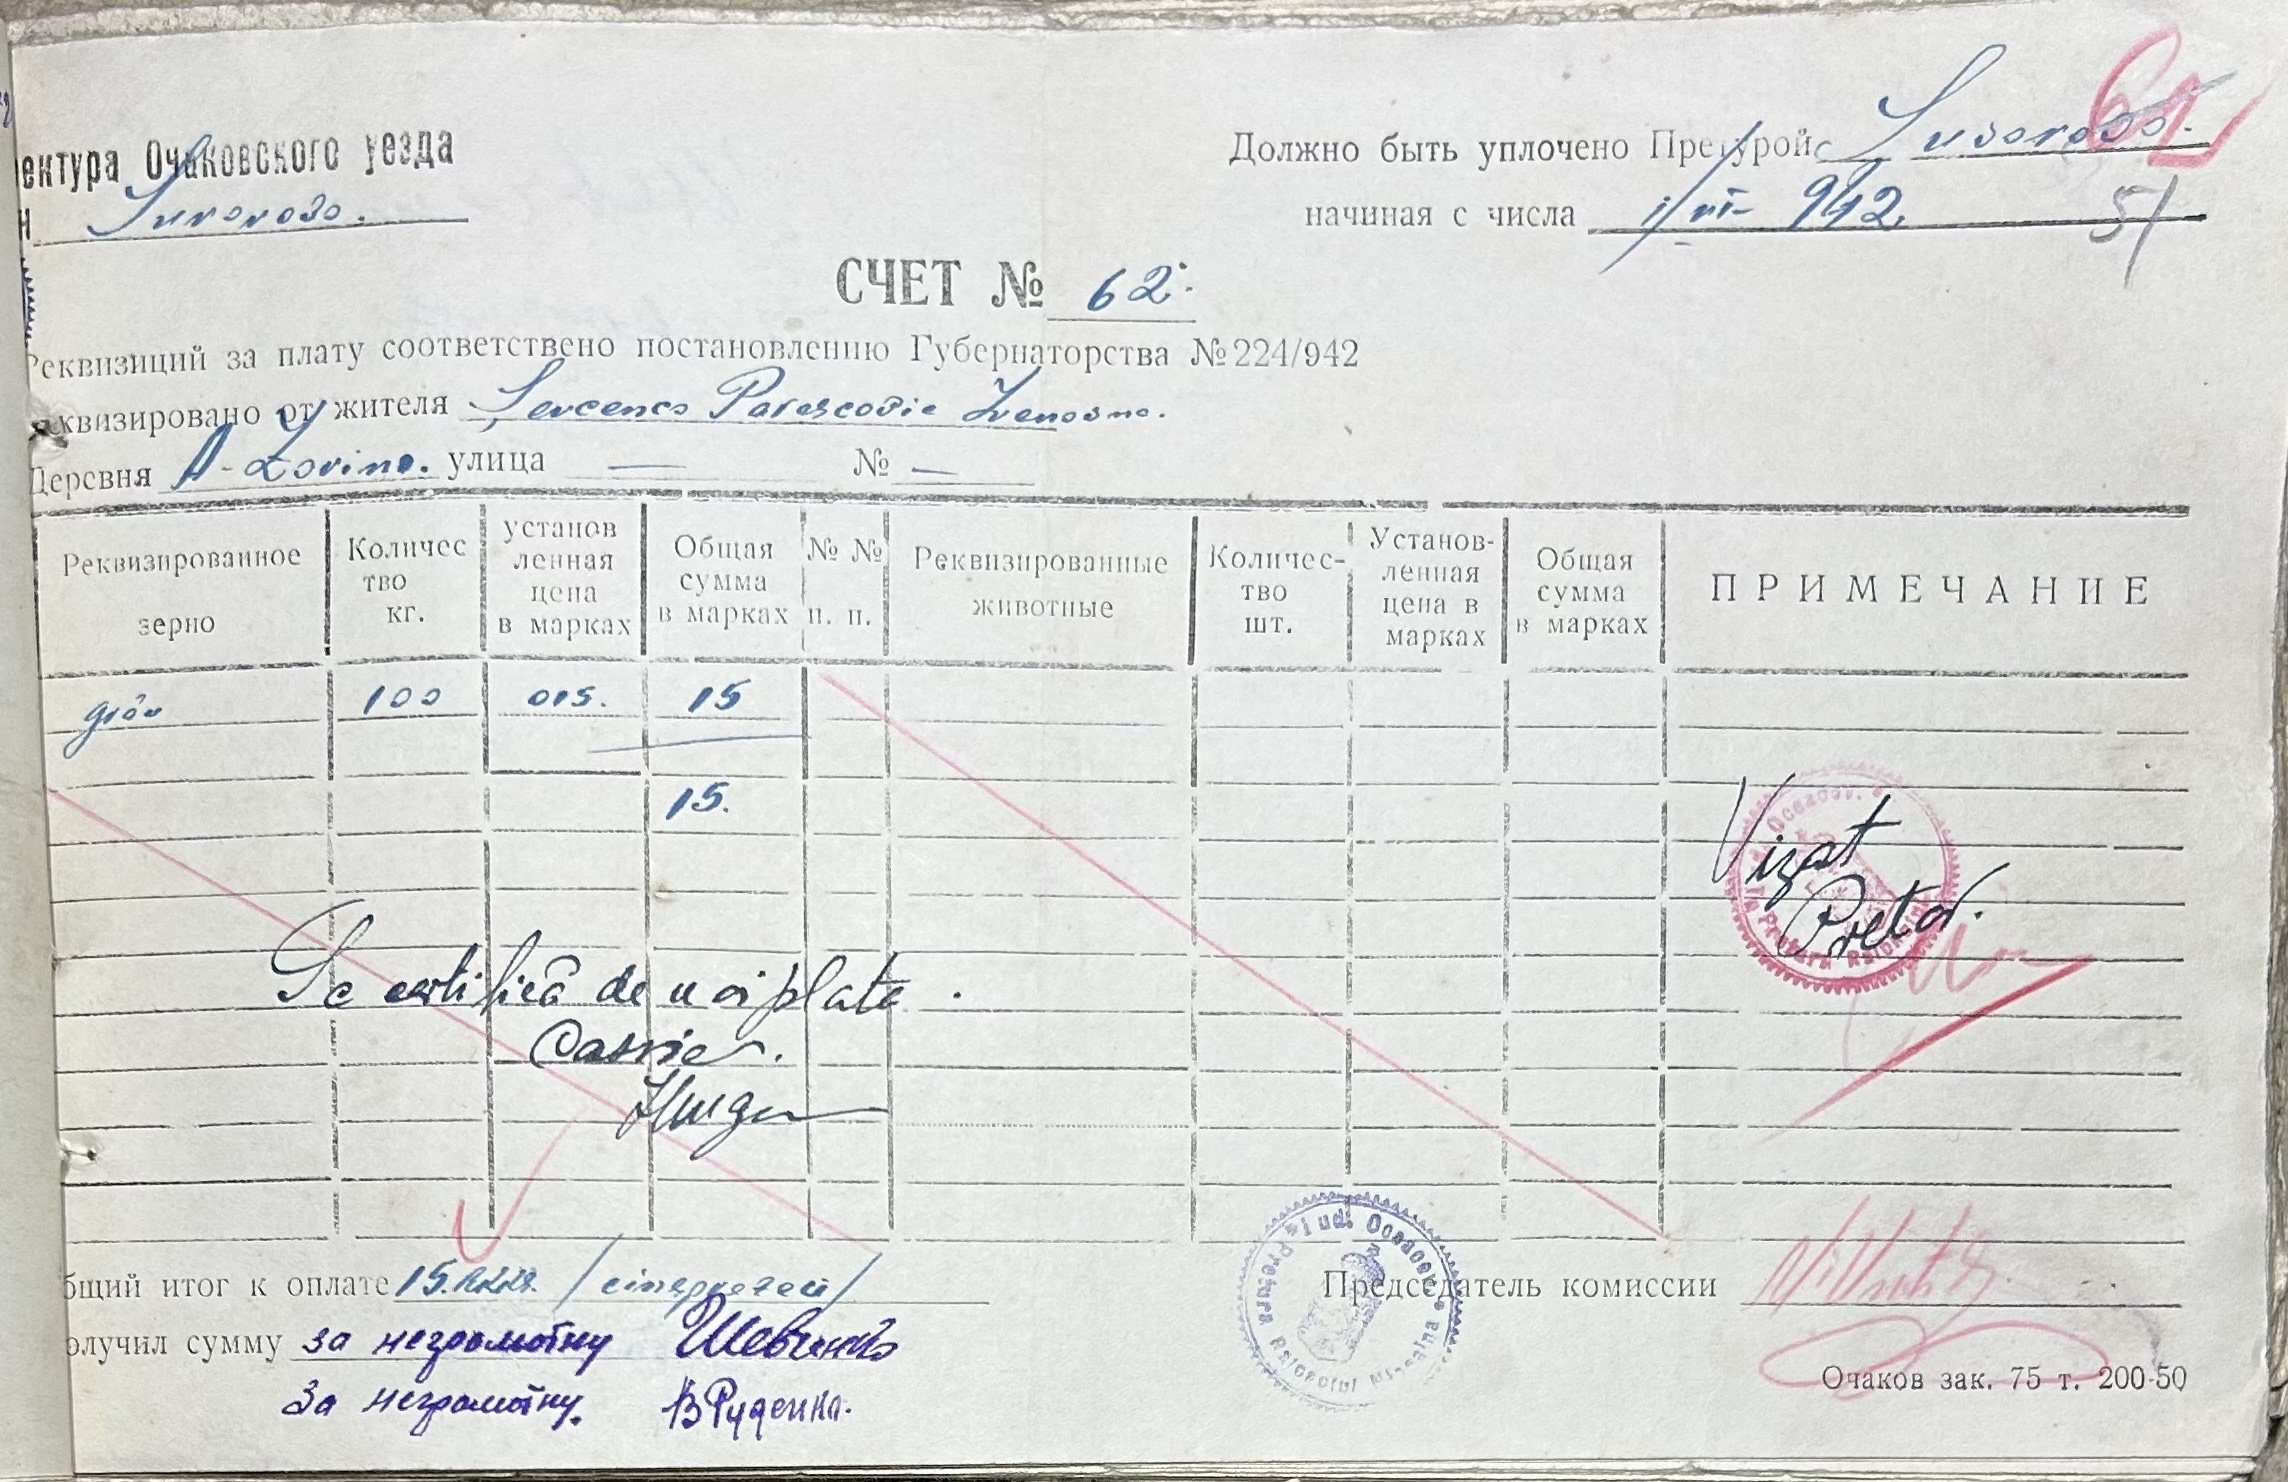 ектура Очаковского уезда
Suvorovo.
н
Должно быть уплочено Претурой Suvorovo.
62
начиная с числа 1/VI- 942.
51
СЧЕТ № 62.
Реквизиций за плату соответствено постановлению Губернаторства № 224/942
еквизировано от жителя Sevcenco Parascovie
Деревня улица — № —
Реквизированное зерно
Количес тво кг.
установ ленная цена в марках
Общая сумма в марках
№ № п. п.
Реквизированные животные
Количес- тво шт.
Установ- ленная цена в марках
Общая сумма в марках
ПРИМЕЧАНИЕ
grâu 100 015. 15
15.
Vizat
Pretor.
Se certifică de noi plata.
Casier.
бщий итог к оплате 15. /cinsprezeci/
Председатель комиссии
олучил сумму за неграмотну Шевченко
За неграмотну. В Руденко.
Очаков зак. 75 т. 200-50